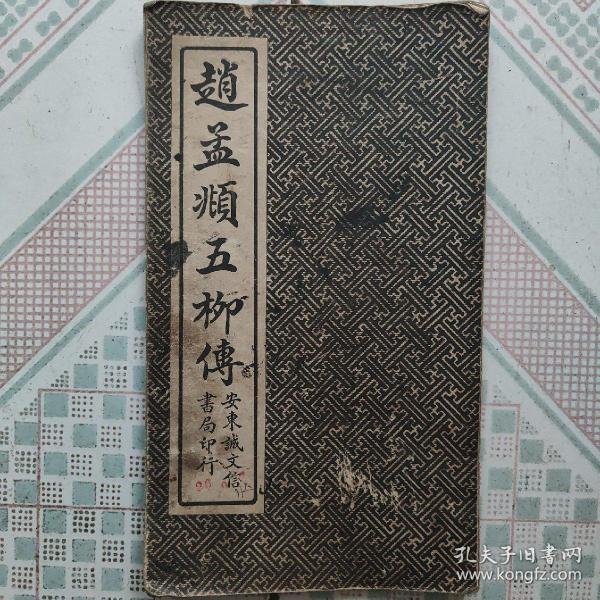 趙孟頫五柳傳
安東誠文信
書局印行
孔夫子旧書网
www.kongfz.com